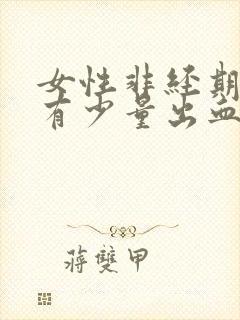 女性非经期
有少量出血
蒋雙甲